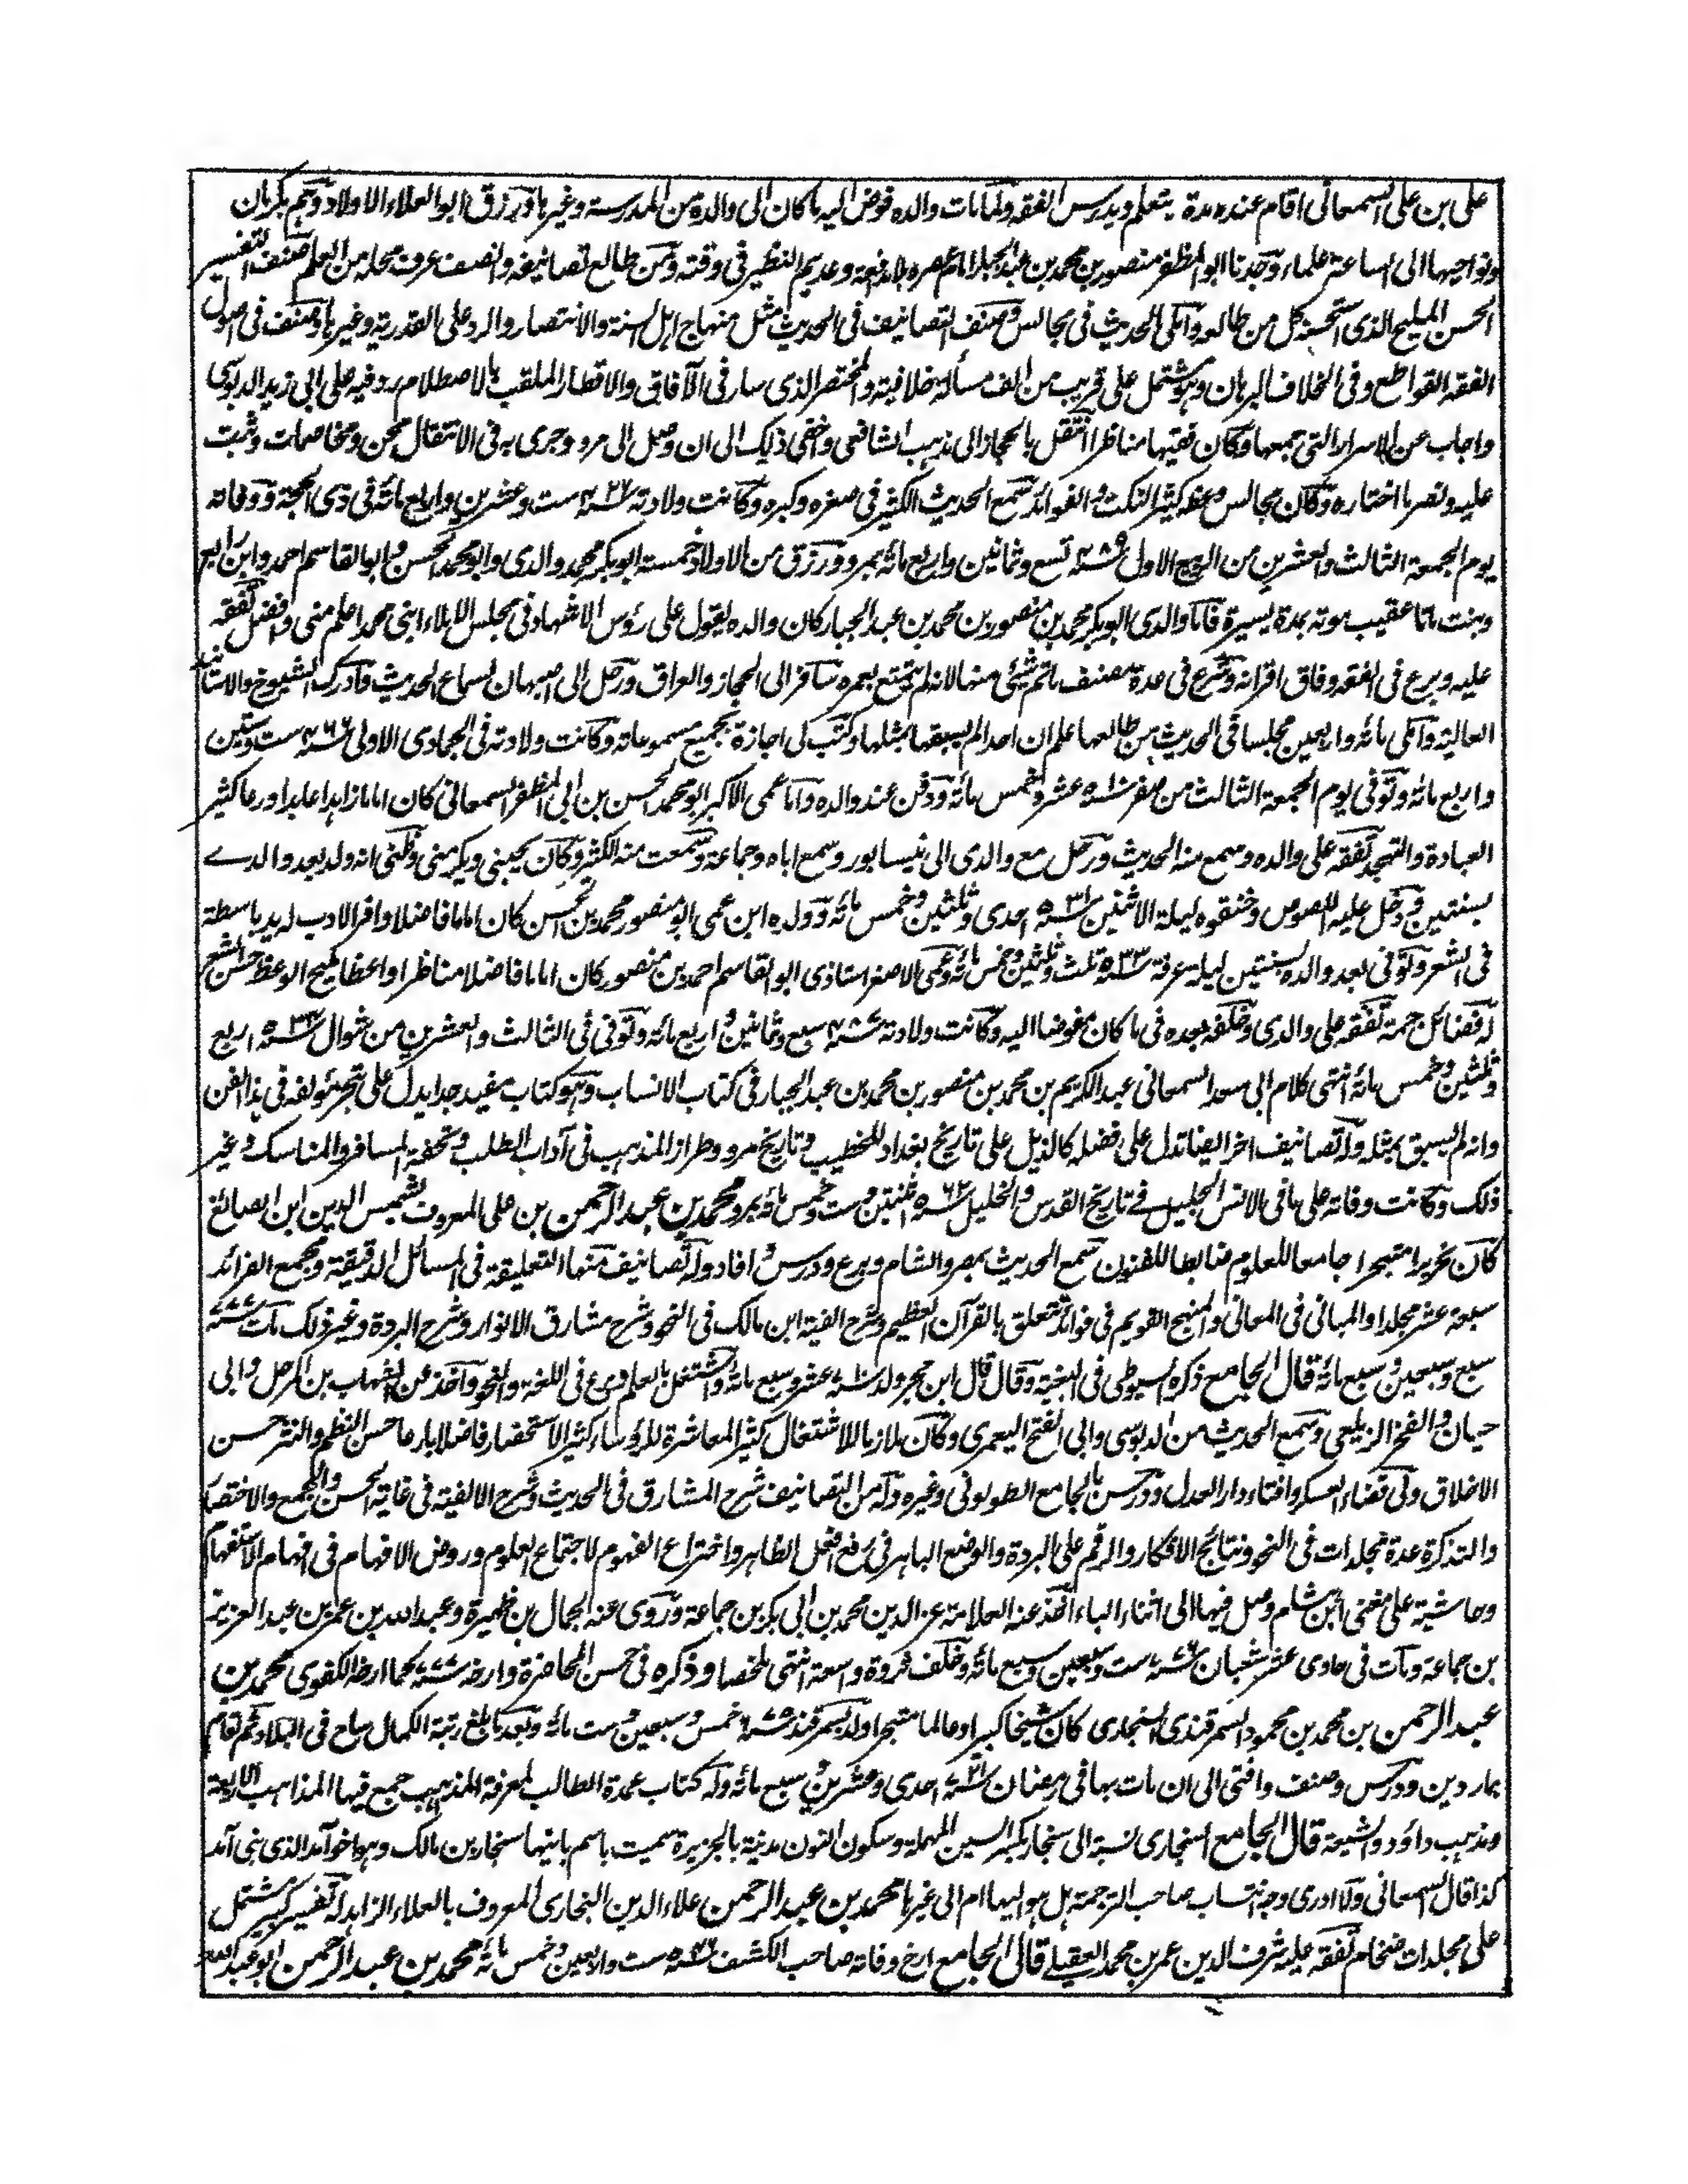 على بن على السمعانى اقام عنده مدة يتعلم ويدرس الفقه ولما مات والده فوض اليه ما كان الى والده من المدرسة وغيرها ورزق ابو العلاء الاولاد وهم بكرمان
ونواحيها الى الساعة علماء وجدنا ابو المظفر منصور بن محمد بن عبد الجبار امام عصره بلا مدافعة وعديم النظير فى وقته ومن طالع تصانيفه وانصف عرف محله من العلم صنف التفسير
الحسن المليح الذى استحسنه كل من طالعه واملى الحديث فى مجالس وصنف التصانيف فى الحديث مثل منهاج اهل السنة والانتصار والرد على القدرية وغيرها وصنف فى اصول
الفقه القواطع وفى الخلاف البرهان وهو مشتمل على قريب من الف مسألة خلافية والمختصر الذى سار فى الآفاق والاقطار الملقب بالاصطلام رد فيه على ابى زيد الدبوسى
واجاب عن الاسرار التى جمعها وكان فقيها مناظرا انتقل بالحجاز الى مذهب الشافعى واخفى ذلك الى ان وصل الى مرو وجرى به فى الانتقال محن ومخاصمات وثبت
عليه ونصر ما اختاره وكان مجالس وعظه كثير النكت والفوائد سمع الحديث الكثير فى صغره وكبره وكانت ولادته سنة ٤٢٦ ست وعشرين واربع مائة فى ذى الحجة ووفاته
يوم الجمعة الثالث والعشرين من الربيع الاول سنة ٤٨٩ تسع وثمانين واربع مائة بمرو ورزق من الاولاد خمسة ابو بكر محمد والدى وابو محمد الحسن وابو القاسم احمد وابن رابع
وبنت ماتا عقيب موته بمدة يسيرة فاما والدى ابو بكر محمد بن منصور بن محمد بن عبد الجبار كان والده يقول على رؤس الاشهاد فى مجلس الاملاء ابنى محمد اعلم منى وافضل تفقه
عليه وبرع فى الفقه وفاق اقرانه وشرع فى عدة مصنف ما تم شئ منها لانه لم يتمتع بعمره سافر الى الحجاز والعراق ورحل الى اصبهان لسماع الحديث وادرك الشيوخ والاسانيد
العالية واملى مائة واربعين مجلسا فى الحديث من طالعها علم ان احدا لم يسبقها بمثلها وكتب لى اجازة بجميع مسموعاته وكانت ولادته فى الجمادى الاولى سنة ٤٦٦ ست وستين
واربع مائة وتوفى يوم الجمعة الثالث من صفر سنة ٥١٠ عشر وخمس مائة ودفن عند والده واما عمى الاكبر ابو محمد الحسن بن ابى المظفر السمعانى كان اماما زاهدا عابدا ورعا كثير
العبادة والتهجد تفقه على والده وسمع منه الحديث ورحل مع والدى الى نيسابور وسمع اباه وجماعة وسمعت منه الكثير وكان يحبنى ويكرمنى وظنى انه ولد بعد والدى
بسنتين ودخل عليه اللصوص وخنقوه ليلة الاثنين سنة ٥٣١ احدى وثلثين وخمس مائة وولده ابن عمى ابو منصور محمد بن الحسن كان اماما فاضلا وافر الادب له يد باسطة
فى الشعر وتوفى بعد والده بسنتين ليلة عرفة سنة ٥٣٣ ثلث وثلثين وخمس مائة وعمى الاصغر استاذى ابو القاسم احمد بن منصور كان اماما فاضلا مناظرا واعظا مليح الوعظ حسن الشعر
له فضائل جمة تفقه على والدى وخلفه بعده فى ما كان مفوضا اليه وكانت ولادته سنة ٤٨٧ سبع وثمانين واربع مائة وتوفى فى الثالث والعشرين من شوال سنة ٥٣٤ اربع
وثلثين وخمس مائة انتهى كلام ابى سعد السمعانى عبد الكريم بن محمد بن منصور بن محمد بن عبد الجبار فى كتاب الانساب وهو كتاب مفيد جدا يدل على تبحر مؤلفه فى هذا الفن
وانه لم يسبق بمثله وله تصانيف اخر ايضا تدل على فضله كالذيل على تاريخ بغداد للخطيب وتاريخ مرو وطراز المذهب فى آداب الطلب وتحفة المسافر والمناسك وغير
ذلك وكانت وفاته على ما فى الانس الجليل فى تاريخ القدس والخليل سنة ٥٦٢ اثنتين وست وخمس مائة بمرو محمد بن عبد الرحمن بن على المعروف بشمس الدين ابن الصائغ
كان نحريرا متبحرا جامعا للعلوم ضابطا للفنون سمع الحديث بمصر والشام وبرع ودرس وافاد وله تصانيف منها التعليقة فى المسائل الدقيقة ومجمع الفرائد
سبعة عشر مجلدا والمبانى فى المعانى والمنهج القويم فى فوائد تتعلق بالقرآن العظيم وشرح الفية ابن مالك فى النحو وشرح مشارق الانوار وشرح البردة وغير ذلك مات سنة ٧٧٧
سبع وسبعين وسبع مائة قال الجامع ذكره السيوطى فى البغية وقال قال ابن حجر ولد سنة ٧١٠ عشر وسبع مائة واشتغل بالعلم وبرع فى اللغة والنحو واخذ عن الشهاب بن المرحل وابى
حيان والفخر الزيلعى وسمع الحديث من الدبوسى وابى الفتح اليعمرى وكان ملازما للاشتغال كثير المعاشرة للرؤساء كثير الاستحضار فاضلا بارعا حسن النظم والنثر حسن
الاخلاق ولى قضاء العسكر وافتاء دار العدل ودرس بالجامع الطولونى وغيره وله من التصانيف شرح المشارق فى الحديث وشرح الالفية فى غاية الحسن والجمع والاختصار
والتذكرة عدة مجلدات فى النحو ونتائج الافكار والرقم على البردة والوضع الباهر فى رفع افعل الظاهر واختراع الفهوم لاجتماع العلوم وروض الافهام فى اقسام الاستفهام
وحاشية على مغنى ابن هشام وصل فيها الى اثناء الباء اخذ عنه العلامة عز الدين محمد بن ابى بكر بن جماعة وروى عنه الجمال بن ظهيرة وعبد الله بن عمر بن عبد العزيز
بن جماعة ومات فى حادى عشر شعبان سنة ٧٧٦ ست وسبعين وسبع مائة وخلف ثروة واسعة انتهى ملخصا وذكره فى حسن المحاضرة وارخه سنة ٧٧٧ كما ارخه الكفوى محمد بن
عبد الرحمن بن محمد بن محمود السمرقندى السنجارى كان شيخا كبيرا وعالما متبحرا ولد بسمرقند سنة ٦٧٥ خمس وسبعين وست مائة وبعد ما بلغ رتبة الكمال ساح فى البلاد ثم اقام
بماردين ودرس وصنف وافتى الى ان مات بها فى رمضان سنة ٧٢١ احدى وعشرين وسبع مائة وله كتاب عمدة الطالب لمعرفة المذاهب جمع فيها المذاهب الاربعة
ومذهب داؤد والشيعة قال الجامع السنجارى نسبة الى سنجار بكسر السين المهملة وسكون النون مدينة بالجزيرة سميت باسم بانيها سنجار بن مالك وهو اخو آمد الذى بنى آمد
كذا قال السمعانى ولا ادرى وجه انتساب صاحب الترجمة هل هو اليها ام الى غيرها محمد بن عبد الرحمن علاء الدين البخارى المعروف بالعلاء الزاهد له تفسير كبير مشتمل
على مجلدات ضخام تفقه عليه شرف الدين عمر بن محمد العقيلى قال الجامع ارخ وفاته صاحب الكشف سنة ٥٤٦ ست واربعين وخمس مائة محمد بن عبد الرحمن ابو عبد الله